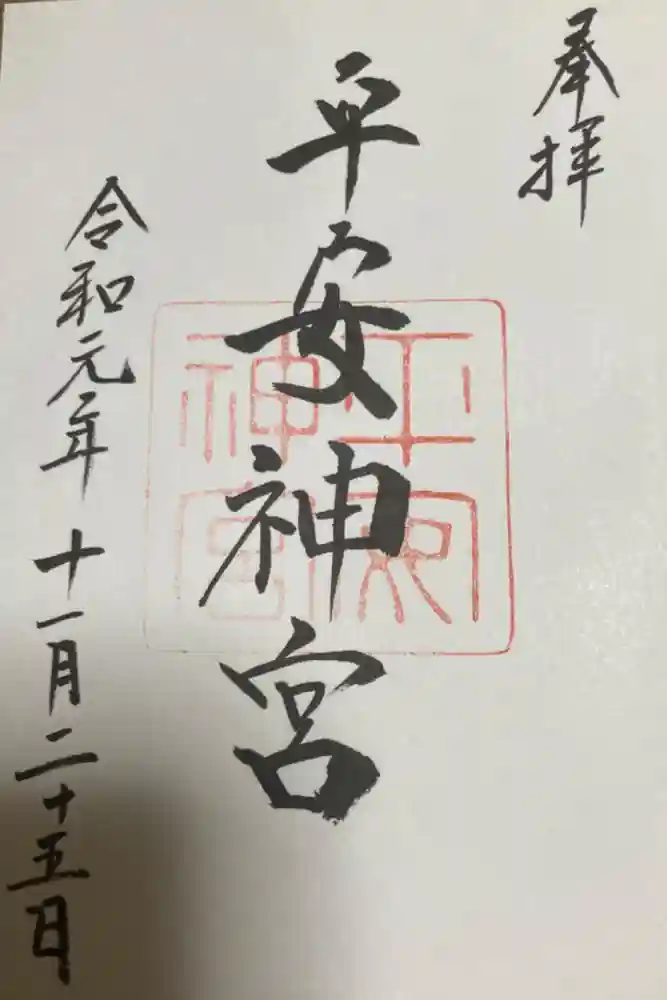 奉拝
平安神宮
令和元年十一月二十五日
平安神宮